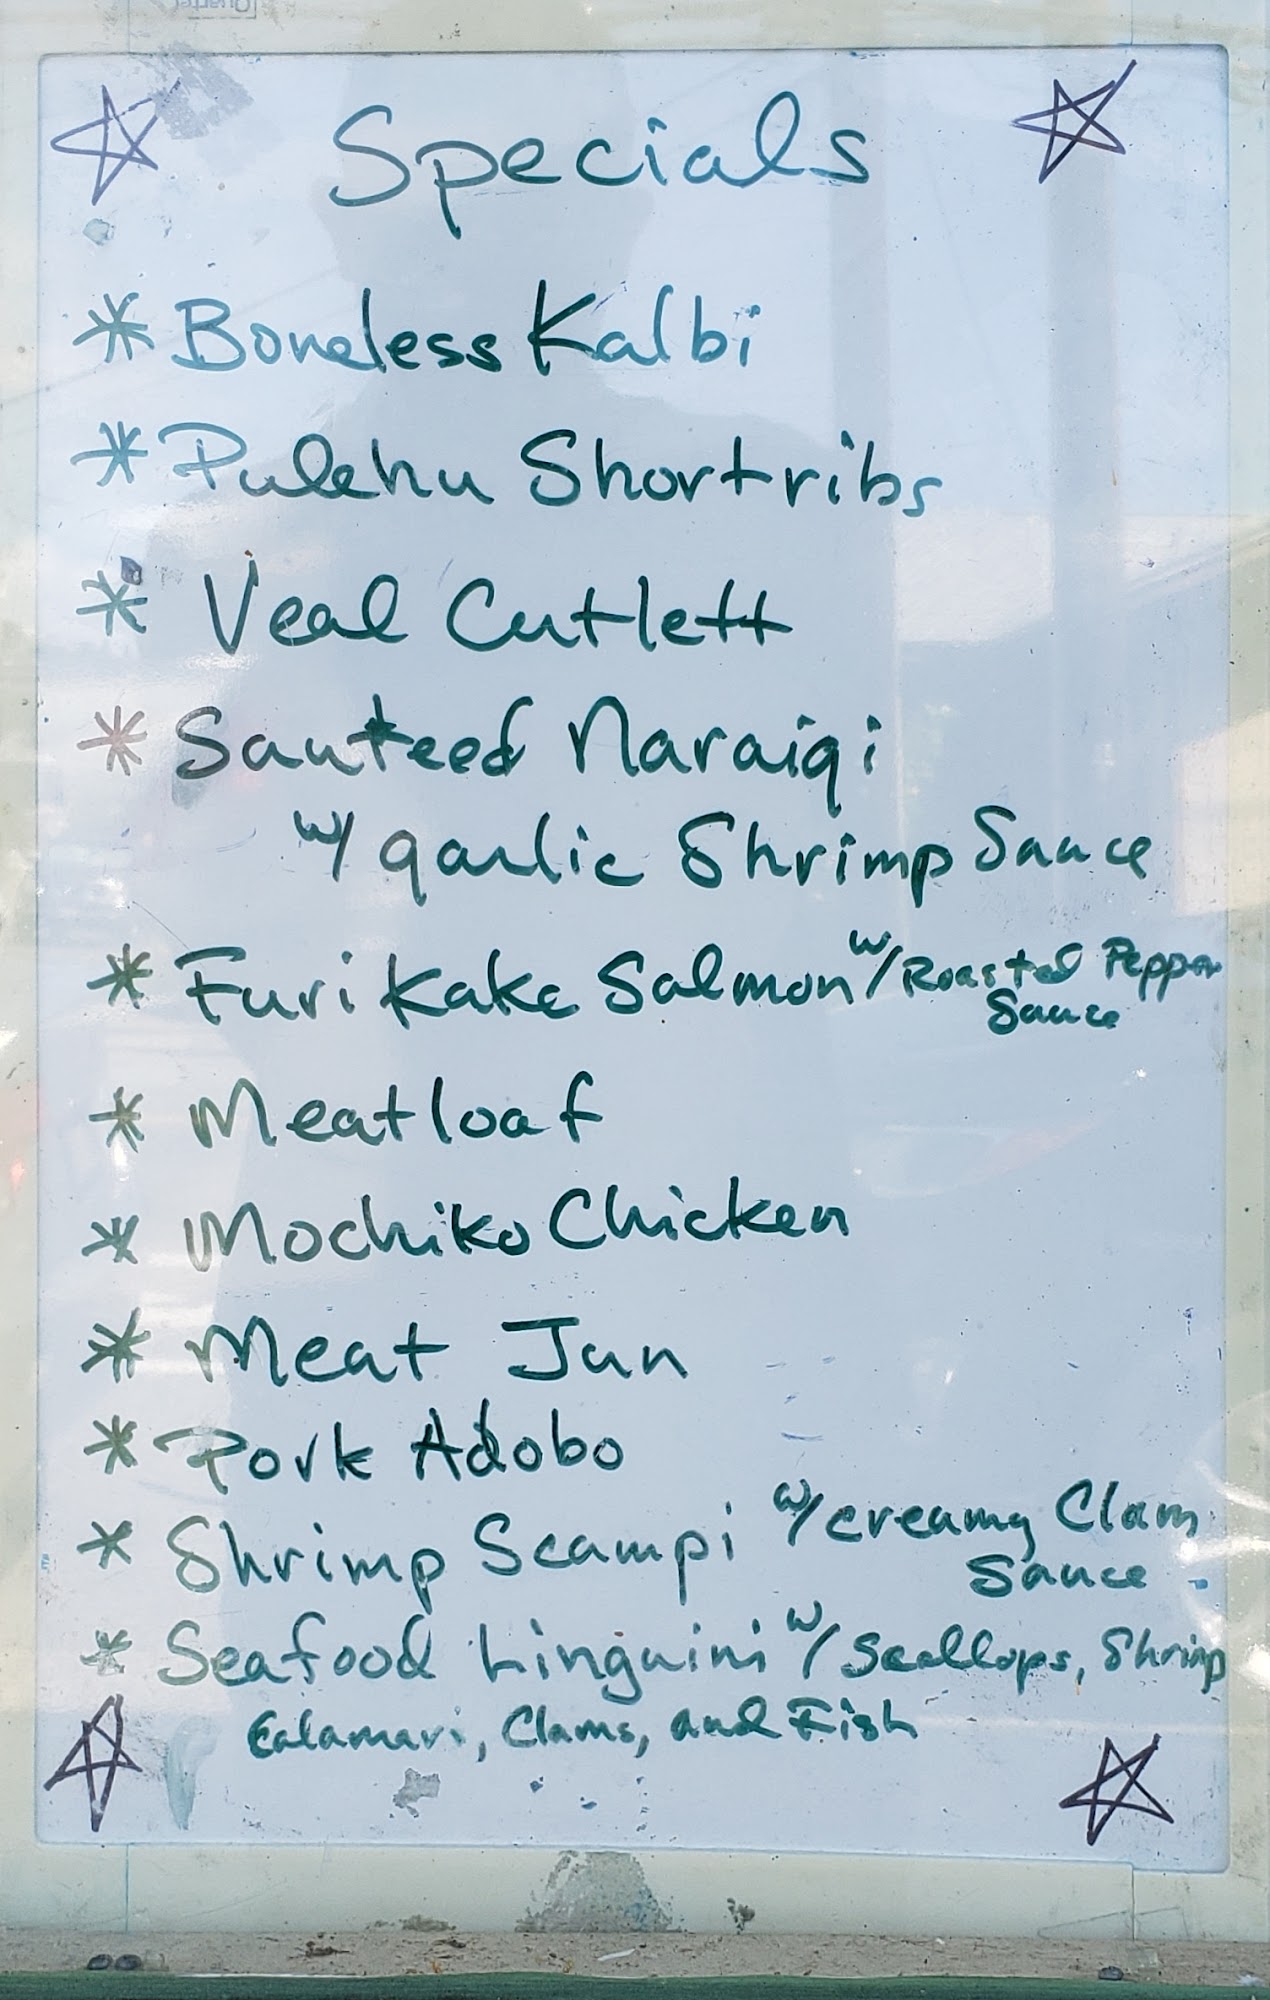 Specials
* Boneless Kalbi
* Pulehu Shortribs
* Veal Cutlett
* Sauteed Naraigi
w/ garlic Shrimp Sauce
* Furi Kake Salmon w/ Roasted Pepper
Sauce
* Meatloaf
* Mochiko Chicken
* Meat Jun
* Pork Adobo
* Shrimp Scampi w/ creamy Clam
Sauce
* Seafood Linguini w/ Scallops, Shrimp
Calamari, Clams, and Fish